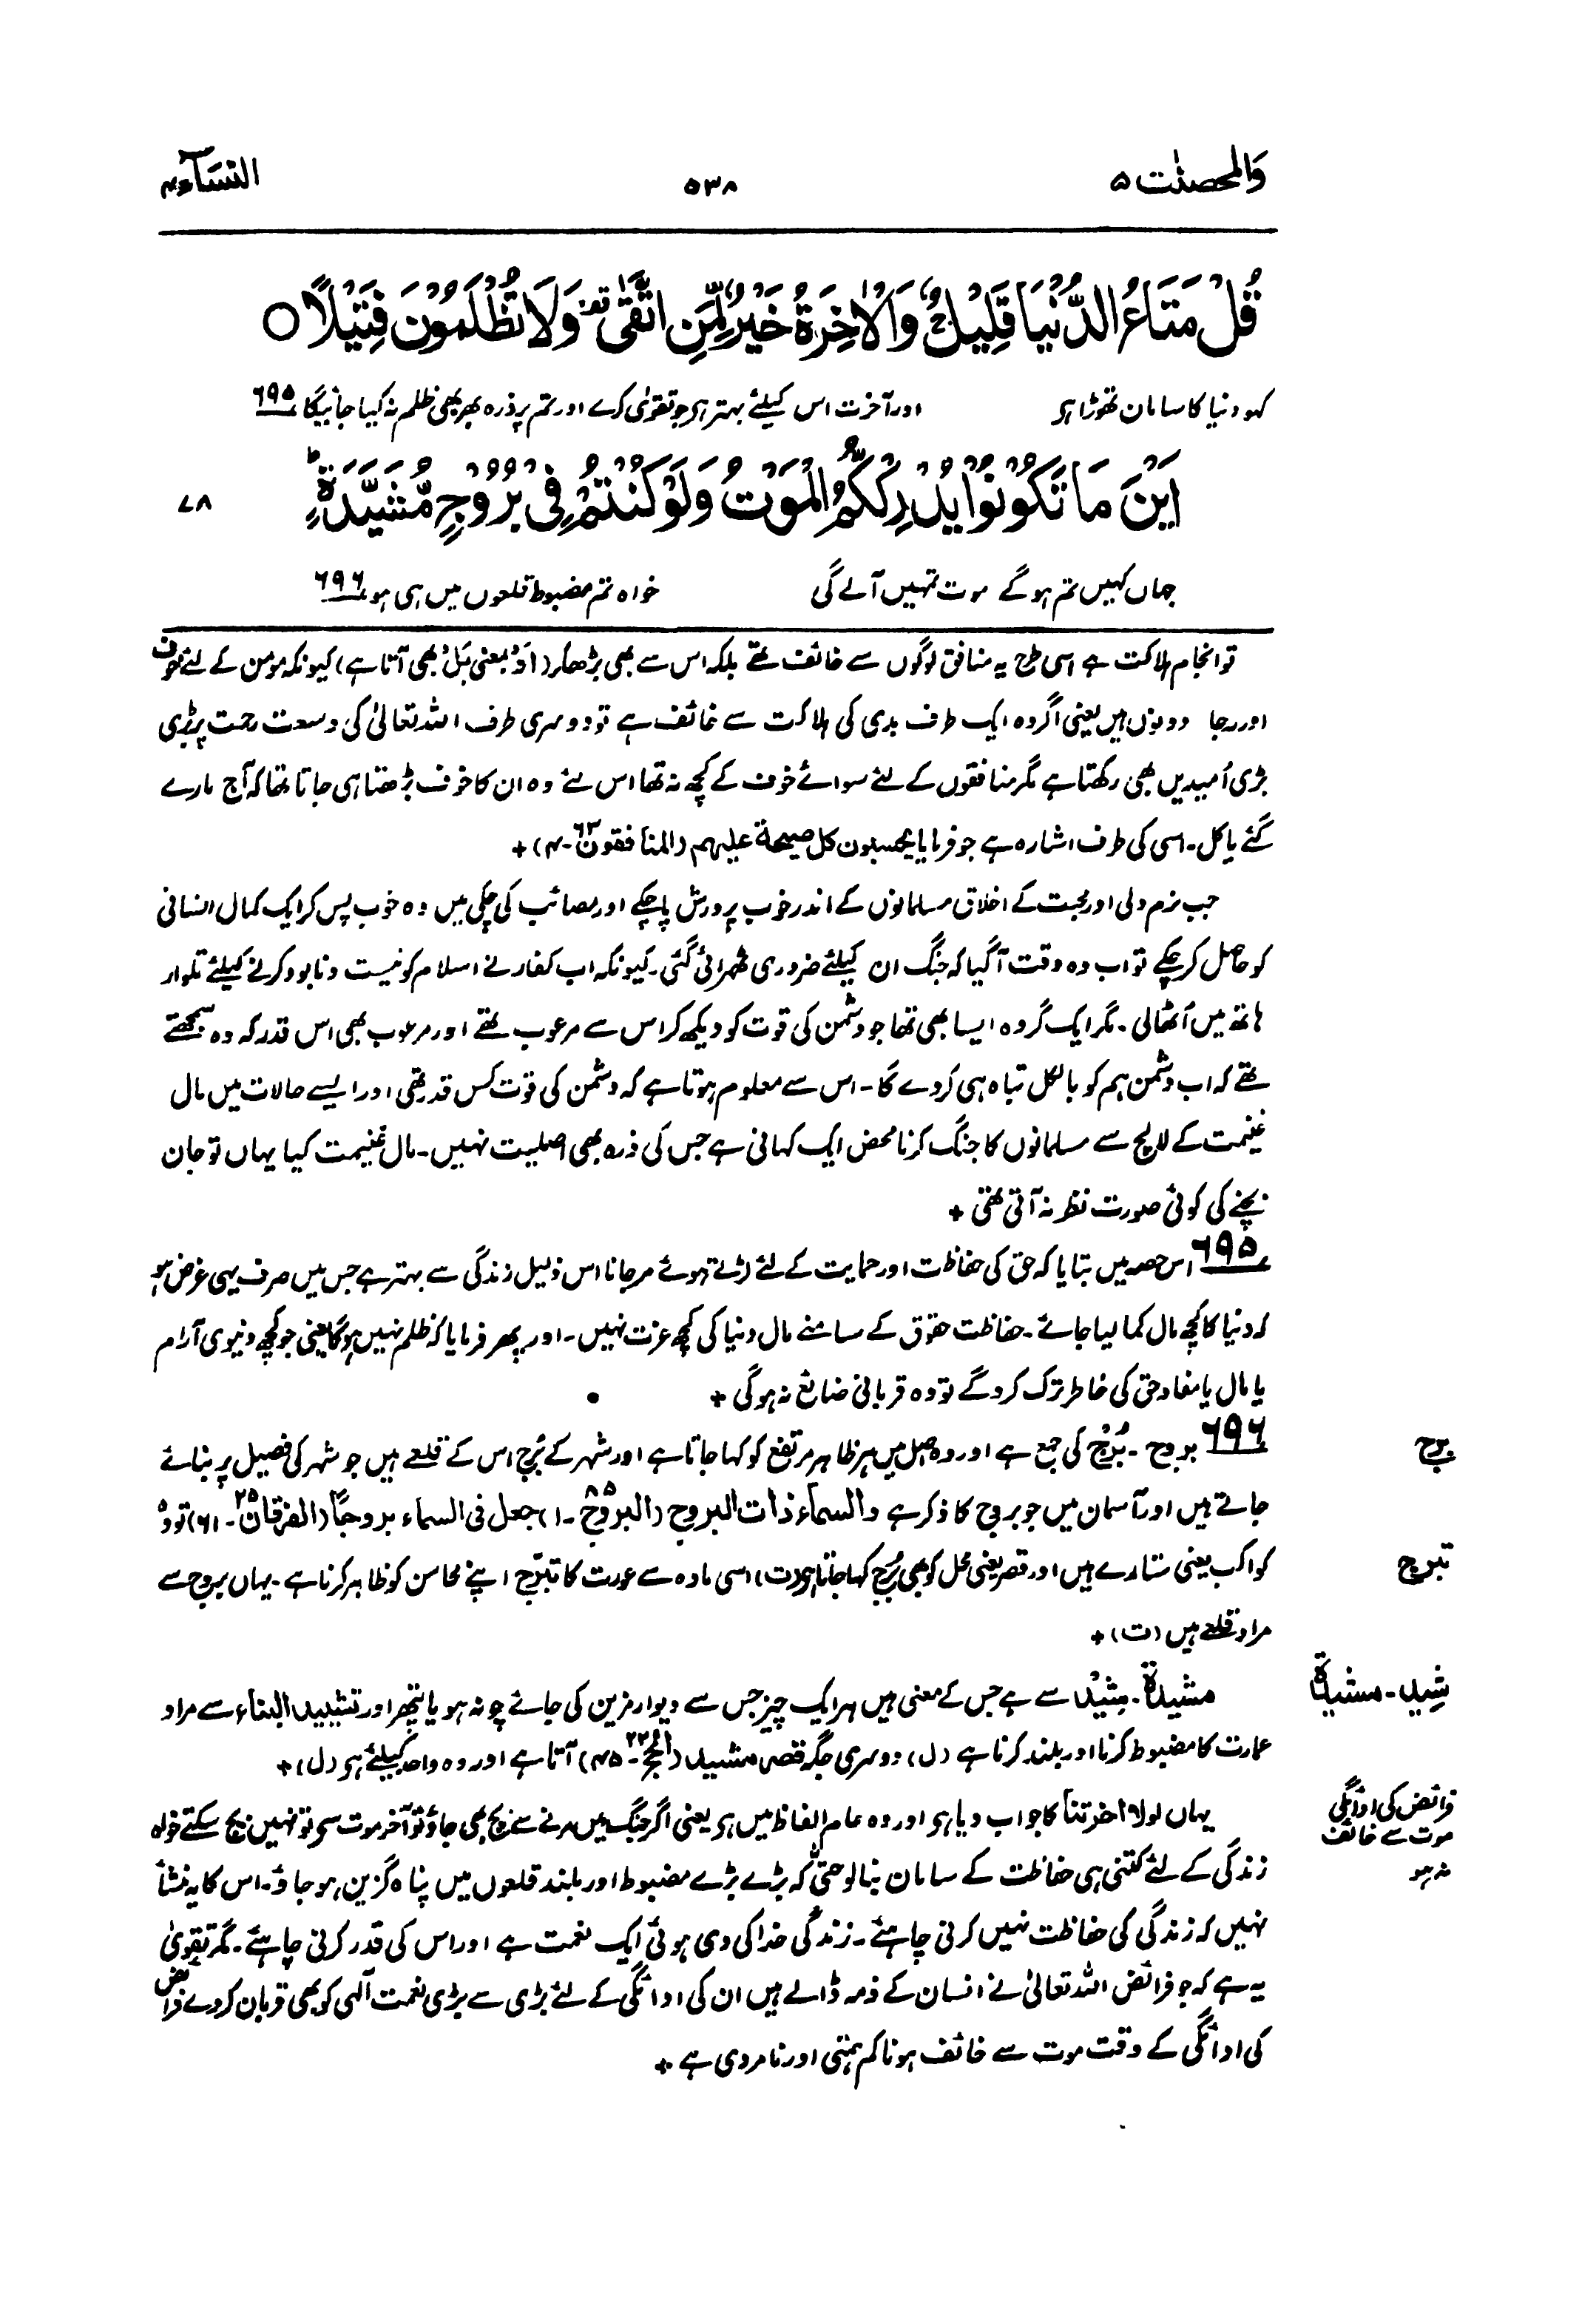 والمحصنٰت ۵
۵۳۸
النسآء ۴
قُلْ مَتَاعُ الدُّنْيَا قَلِيْلٌ ۚ وَالْاٰخِرَةُ خَيْرٌ لِّمَنِ اتَّقٰى ۣ وَلَا تُظْلَمُوْنَ فَتِيْلًا ○
کہو دنیا کا سامان تھوڑا ہو اور آخرت اس کیلئے بہتر ہو جو تقویٰ کرے اور تم پر ذرہ بھر بھی ظلم نہ کیا جائیگا ۶۹۵
اَيْنَ مَا تَكُوْنُوْا يُدْرِكْكُّمُ الْمَوْتُ وَلَوْ كُنْتُمْ فِيْ بُرُوْجٍ مُّشَيَّدَةٍ ؕ
۷۸
جہاں کہیں تم ہو گے موت تمہیں آ لے گی خواہ تم مضبوط قلعوں میں ہی ہو ۶۹۶
تو انجام ہلاکت ہے اسی طرح یہ منافق لوگوں سے خائف تھے بلکہ اس سے بھی بڑھکر (اَوْ بمعنی بَلْ بھی آتا ہے) کیونکہ مومن کے لئے خوف
اور رجا دونوں ہیں یعنی اگر وہ ایک طرف بدی کی ہلاکت سے خائف ہے تو دوسری طرف اللہ تعالیٰ کی وسعت رحمت پر بڑی
بڑی اُمیدیں بھی رکھتا ہے مگر منافقوں کے لئے سوائے خوف کے کچھ نہ تھا اس لئے وہ ان کا خوف بڑھتا ہی جاتا تھا کہ آج مارے
گئے یا کل۔ اسی کی طرف اشارہ ہے جو فرمایا یحسبون کل صیحة علیہم (المنافقون ۶۳۔ ۴) +
جب نرم دلی اور محبت کے اخلاق مسلمانوں کے اندر خوب پرورش پا چکے اور مصائب کی چکی میں وہ خوب پس کر ایک کمال انسانی
کو حاصل کر چکے تو اب وہ وقت آ گیا کہ جنگ ان کیلئے ضروری ٹھہرائی گئی۔ کیونکہ اب کفار نے اسلام کو نیست و نابود کرنے کیلئے تلوار
ہاتھ میں اُٹھا لی۔ مگر ایک گروہ ایسا بھی تھا جو دشمن کی قوت کو دیکھ کر اس سے مرعوب تھے اور مرعوب بھی اس قدر کہ وہ سمجھتے
تھے کہ اب دشمن ہم کو بالکل تباہ ہی کر دے گا۔ اس سے معلوم ہوتا ہے کہ دشمن کی قوت کس قدر تھی اور ایسے حالات میں مال
غنیمت کے لالچ سے مسلمانوں کا جنگ کرنا محض ایک کہانی ہے جس کی ذرہ بھی اصلیت نہیں۔ مال غنیمت کیا یہاں تو جان
بچنے کی کوئی صورت نظر نہ آتی تھی +
۶۹۵ اس حصہ میں بتایا کہ حق کی حفاظت اور حمایت کے لئے لڑتے ہوئے مر جانا اس ذلیل زندگی سے بہتر ہے جس میں صرف یہی غرض ہو
کہ دنیا کا کچھ مال کما لیا جائے۔ حفاظت حقوق کے سامنے مال دنیا کی کچھ عزت نہیں۔ اور پھر فرمایا کہ ظلم نہیں ہو گا یعنی جو کچھ دنیوی آرام
یا مال یا مفاد حق کی خاطر ترک کرو گے تو وہ قربانی ضائع نہ ہو گی +
۶۹۶ بروج۔ بُرْج کی جمع ہے اور وہ اصل میں ہر ظاہر مرتفع کو کہا جاتا ہے اور شہر کے بُرج اس کے قلعے ہیں جو شہر کی فصیل پر بنائے
جاتے ہیں اور آسمان میں جو بروج کا ذکر ہے والسماء ذات البروج (البروج ۸۵۔ ۱) جعل فی السماء بروجاً (الفرقان ۲۵۔ ۶۱) تو وہ
کواکب یعنی ستارے ہیں اور قصر یعنی محل کو بھی بُرج کہا جاتا ہو (ت) اسی مادہ سے عورت کا تبرّج اپنے محاسن کو ظاہر کرنا ہے۔ یہاں بروج سے
مراد قلعے ہیں (ت) +
مشیدة۔ شِیْد سے ہے جس کے معنی ہیں ہر ایک چیز جس سے دیوار مزین کی جائے چونہ ہو یا پتھر اور تشیید البناء سے مراد
عمارت کا مضبوط کرنا اور بلند کرنا ہے (ل) دوسری جگہ قصر مشید (الحج ۲۲۔ ۴۵) آتا ہے اور وہ واحد کیلئے ہو (ل) +
یہاں لولا اخرتنا کا جواب دیا ہو اور وہ عام الفاظ میں ہو یعنی اگر جنگ میں مرنے سے بچ بھی جاؤ تو آخر موت سے تو نہیں بچ سکتے خواہ
زندگی کے لئے کتنی ہی حفاظت کے سامان بنا لو حتیٰ کہ بڑے بڑے مضبوط اور بلند قلعوں میں پناہ گزین ہو جاؤ۔ اس کا یہ منشا
نہیں کہ زندگی کی حفاظت نہیں کرنی چاہئے۔ زندگی خدا کی دی ہوئی ایک نعمت ہے اور اس کی قدر کرنی چاہئے۔ مگر تقویٰ
یہ ہے کہ جو فرائض اللہ تعالیٰ نے انسان کے ذمہ ڈالے ہیں ان کی ادائگی کے لئے بڑی سے بڑی نعمت آلہی کو بھی قربان کر دے فرائض
کی ادائگی کے وقت موت سے خائف ہونا کم ہمتی اور نامردی ہے +
برج
تبرج
شِید۔ مشیدة
فرائض کی ادائگی
موت سے خائف
نہ ہو